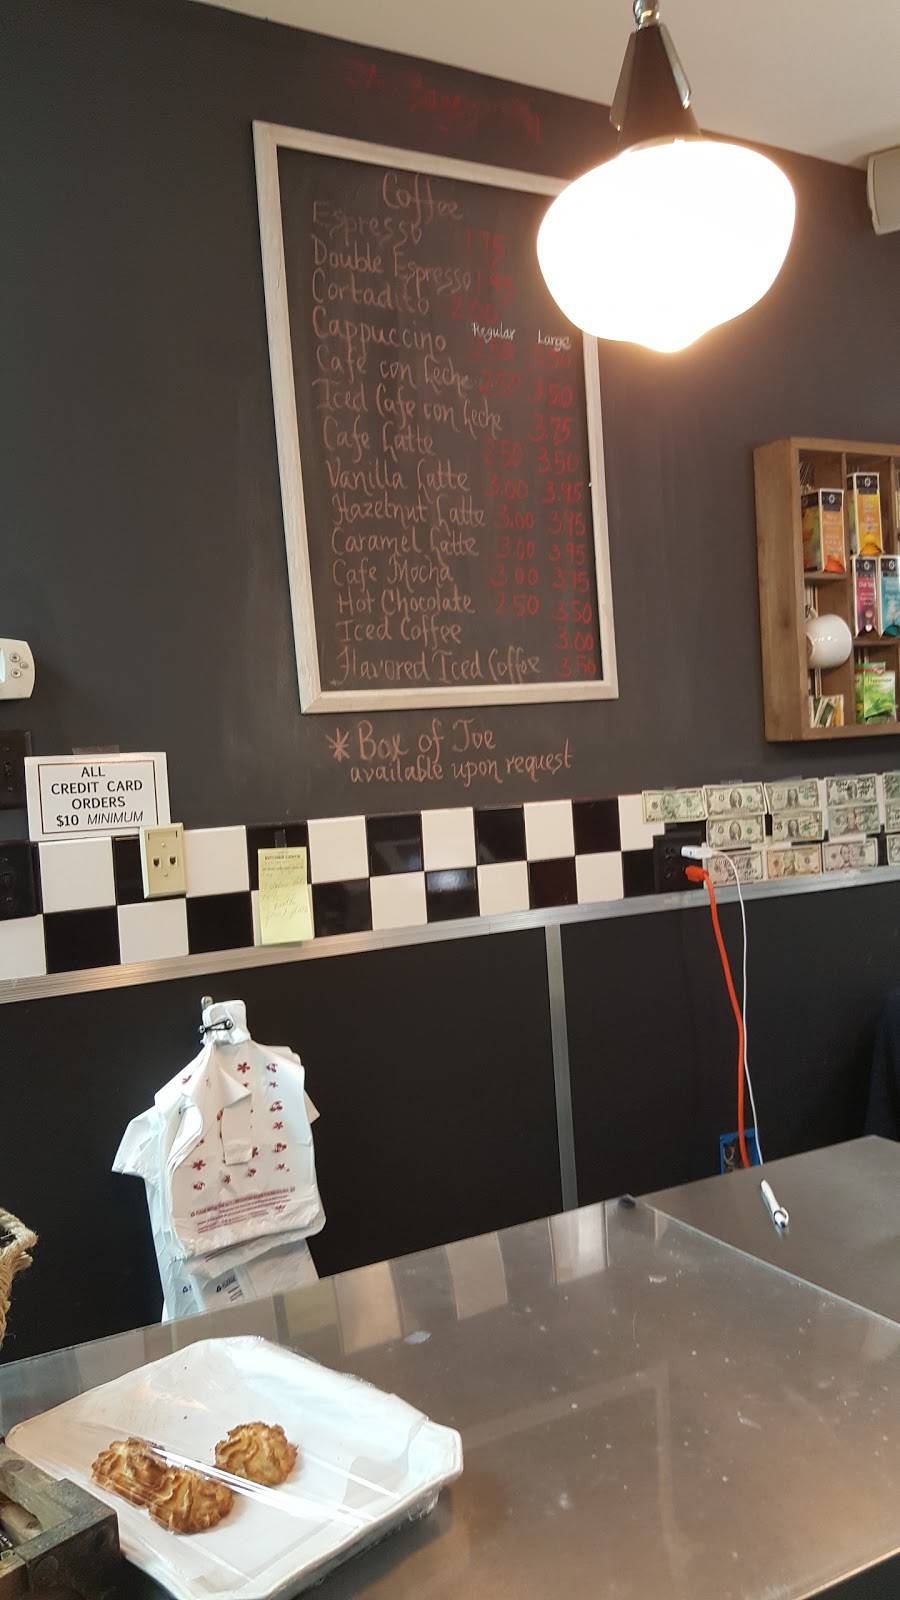 Coffee
Espresso 1.75
Double Espresso 1.95
Cortadito 2.00
Regular Large
Cappuccino 2.50 3.50
Cafe con Leche 2.50 3.50
Iced Cafe con Leche 3.75
Cafe Latte 2.50 3.50
Vanilla Latte 3.00 3.95
Hazelnut Latte 3.00 3.95
Caramel Latte 3.00 3.95
Cafe Mocha 3.00 3.75
Hot Chocolate 2.50 3.50
Iced Coffee 3.00
Flavored Iced Coffee 3.50
* Box of Joe
available upon request
ALL
CREDIT CARD
ORDERS
$10 MINIMUM